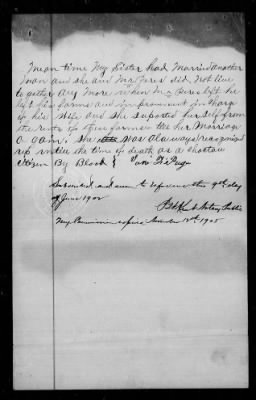 mean time My Sister had Married another
man and she and Mr Peres did Not live
to gether Any More when Mr Peres left he
left his farms and improvement in charg
of his Wife and She Suported her Self from
the rents of these farms till her Marriage
a gain. She was Always recognised
up untill the time of death as a Choctaw
Citizen By Blood
Subscribed and sworn to before me this 9th day
of June 1902
Notary Public
My Commission expires 1905